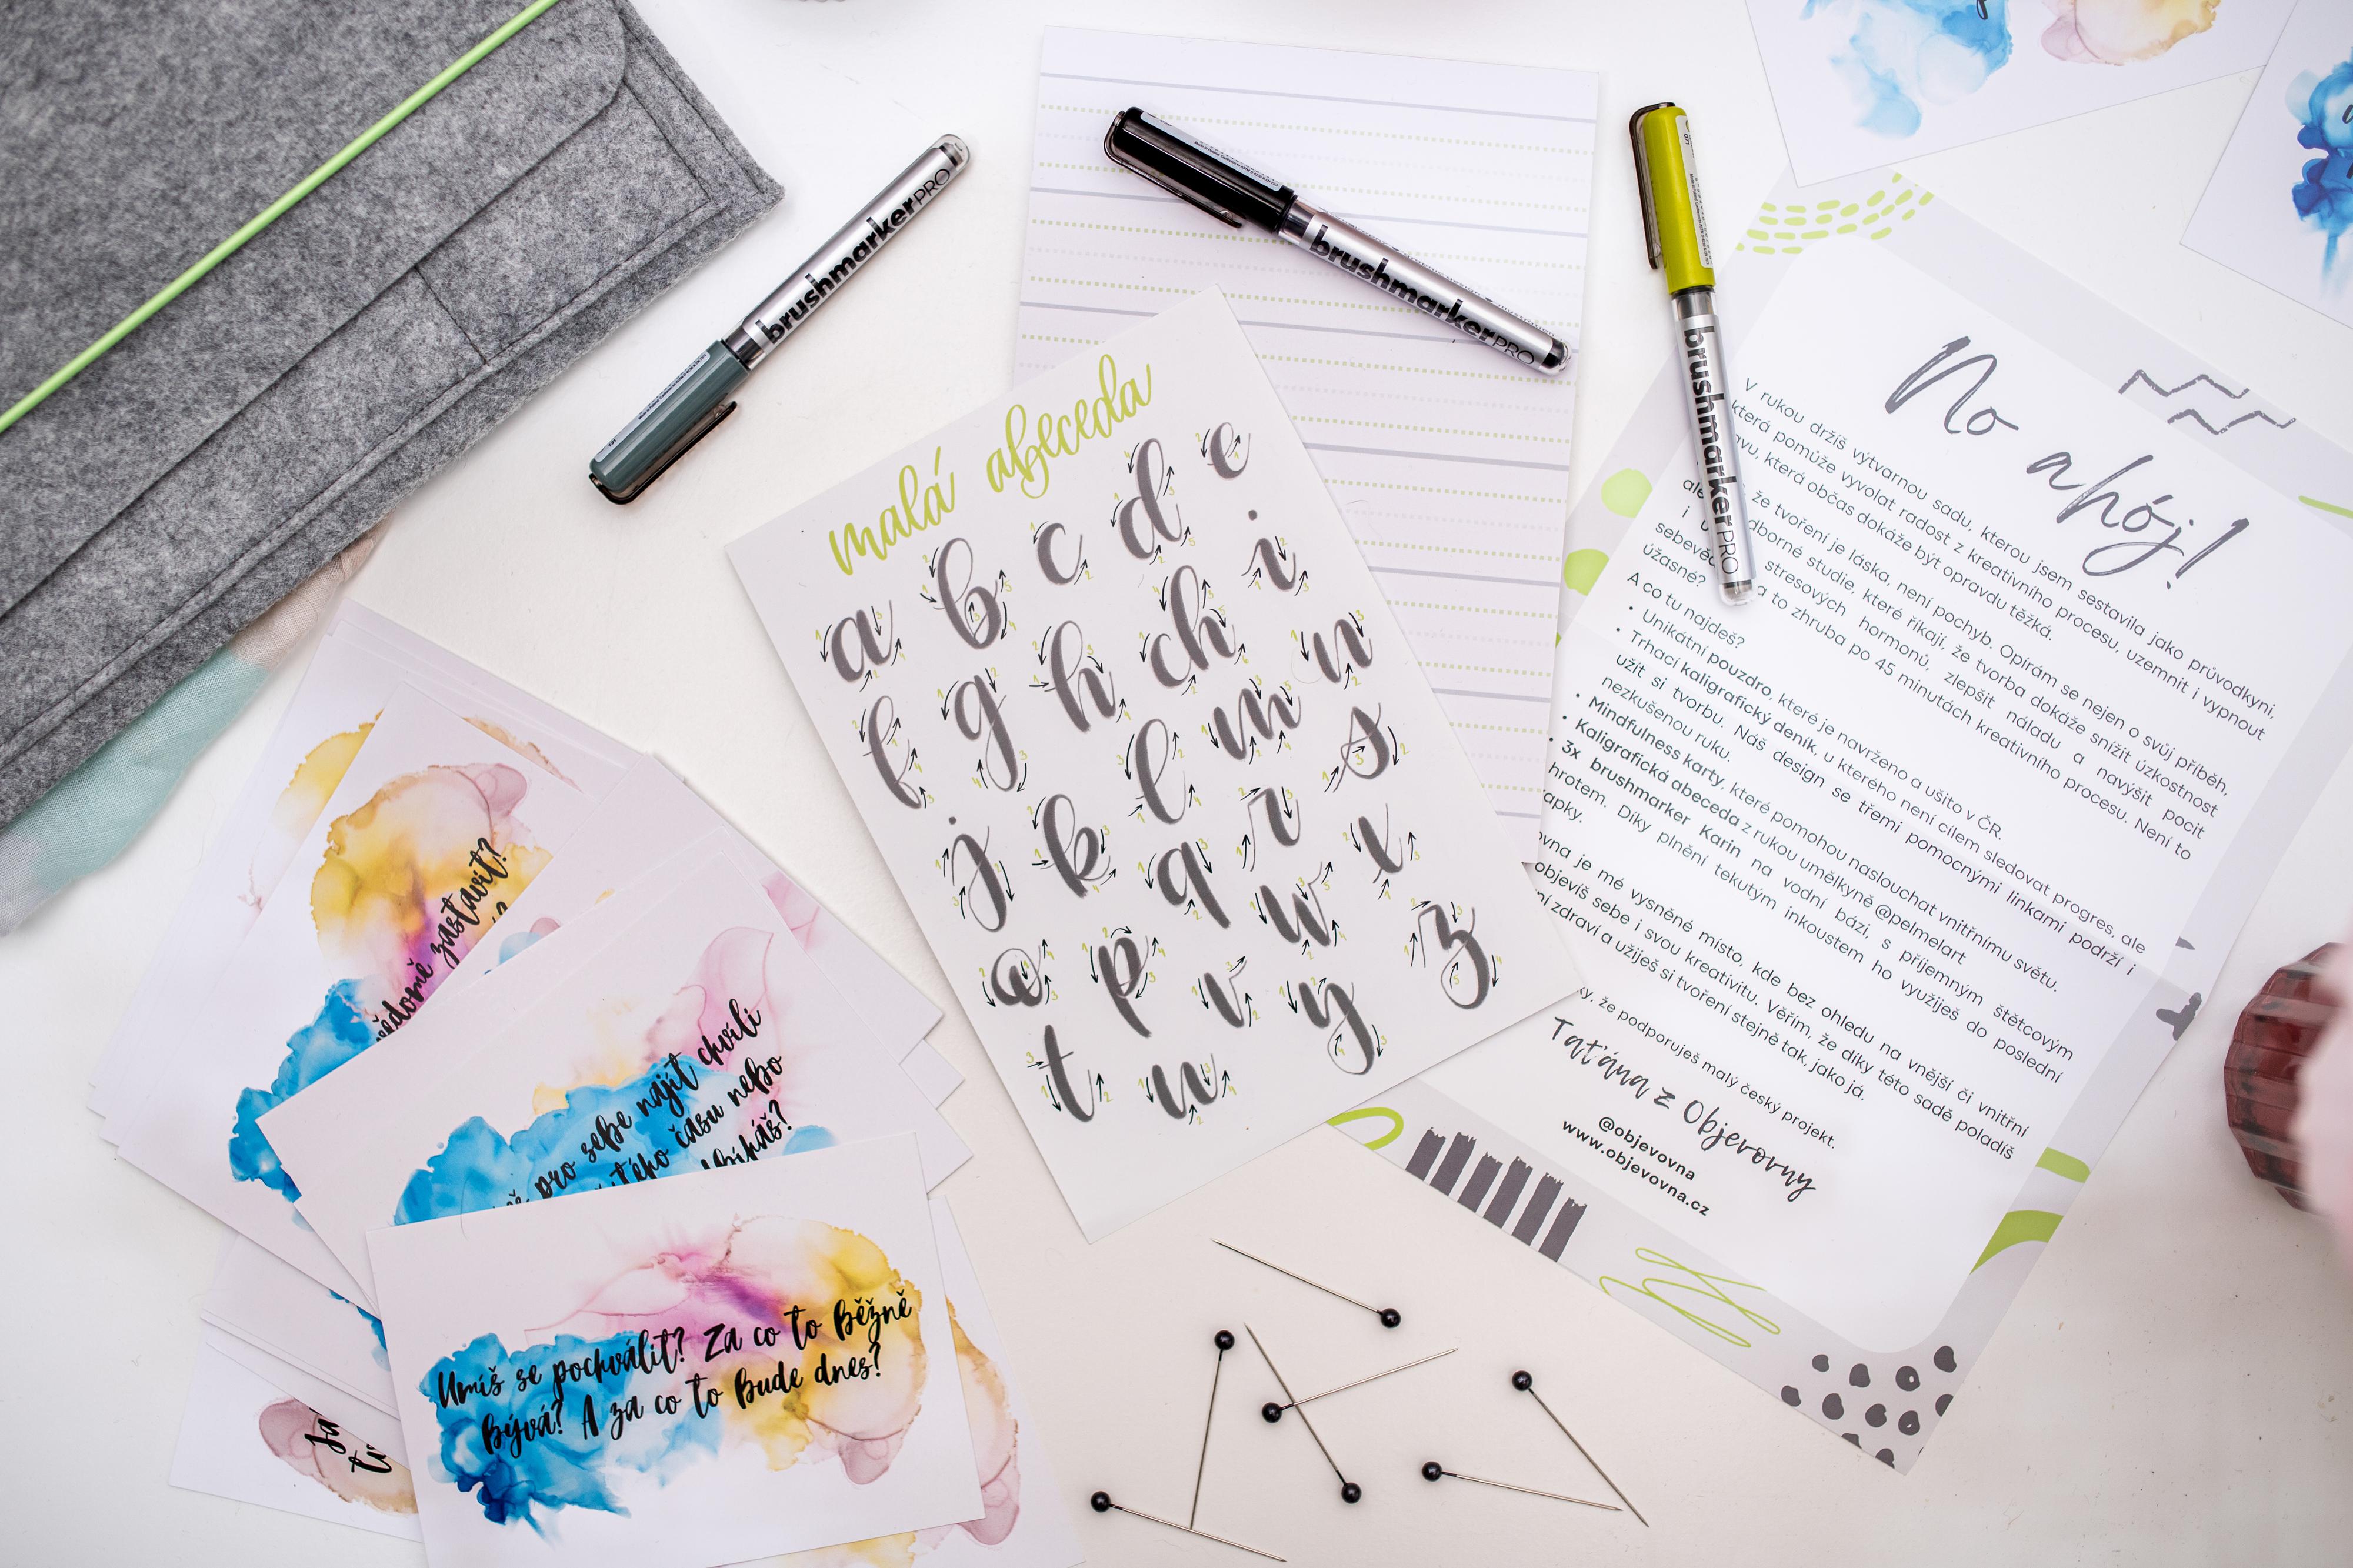 brushmarkerPRO
brushmarkerPRO
brushmarkerPRO
malá abeceda
a b c d e
f g h ch i
j k l m n
o p q r s
t u v w x
y z
No ahoj!
V rukou držíš výtvarnou sadu, kterou jsem sestavila jako průvodkyni,
která pomůže vyvolat radost z kreativního procesu, uzemnit i vypnout
která občas dokáže být opravdu těžká.
že tvoření je láska, není pochyb. Opírám se nejen o svůj příběh,
ale i odborné studie, které říkají, že tvorba dokáže snížit úzkostnost
i stresových hormonů, zlepšit náladu a navýšit pocit
a to zhruba po 45 minutách kreativního procesu. Není to
úžasné?
A co tu najdeš?
• Unikátní pouzdro, které je navrženo a ušito v ČR.
• Trhací kaligrafický deník, u kterého není cílem sledovat progres, ale
užít si tvorbu. Náš design se třemi pomocnými linkami podrží i
nezkušenou ruku.
• Mindfulness karty, které pomohou naslouchat vnitřnímu světu.
• Kaligrafická abeceda z rukou umělkyně @pelmelart
• 3x brushmarker Karin na vodní bázi, s příjemným štětcovým
hrotem. Díky plnění tekutým inkoustem ho využiješ do poslední
kapky.
je mé vysněné místo, kde bez ohledu na vnější či vnitřní
objevíš sebe i svou kreativitu. Věřím, že díky této sadě poladíš
zdraví a užiješ si tvoření stejně tak, jako já.
že podporuješ malý český projekt.
Taťána z Objevovny
@objevovna
www.objevovna.cz
zastavit?
pro sebe najít chvíli
času nebo
Umíš se pochválit? Za co to běžně
bývá? A za co to bude dnes?